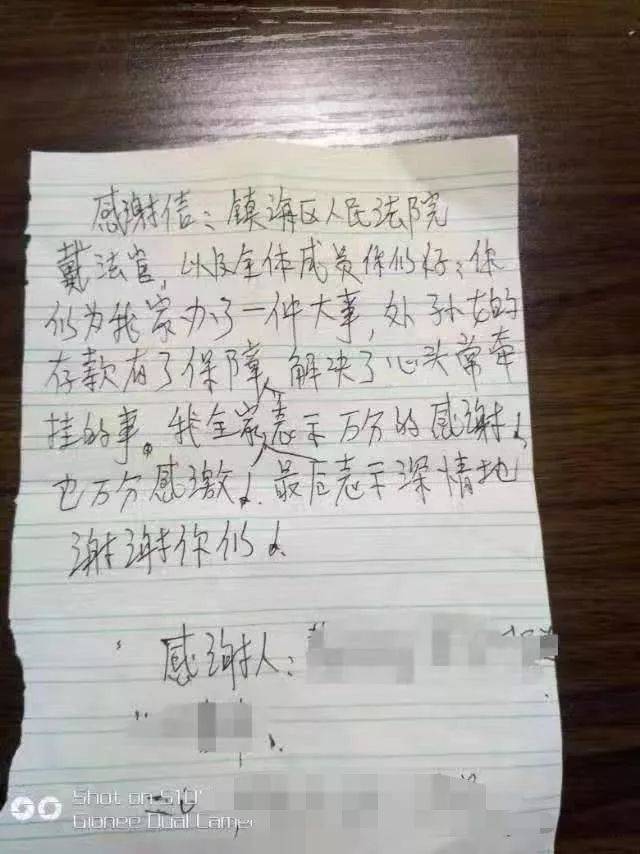 感谢信：镇海区人民法院
戴法官，以及全体成员你们好：你
们为我家办了一件大事，处孙女的
存款有了保障，解决了心头常牵
挂的事。我全家人表示万分的感谢！
也万分感激！最后表示深情地
谢谢你们！
感谢人：
Shot on S10
Gionee Dual Camer